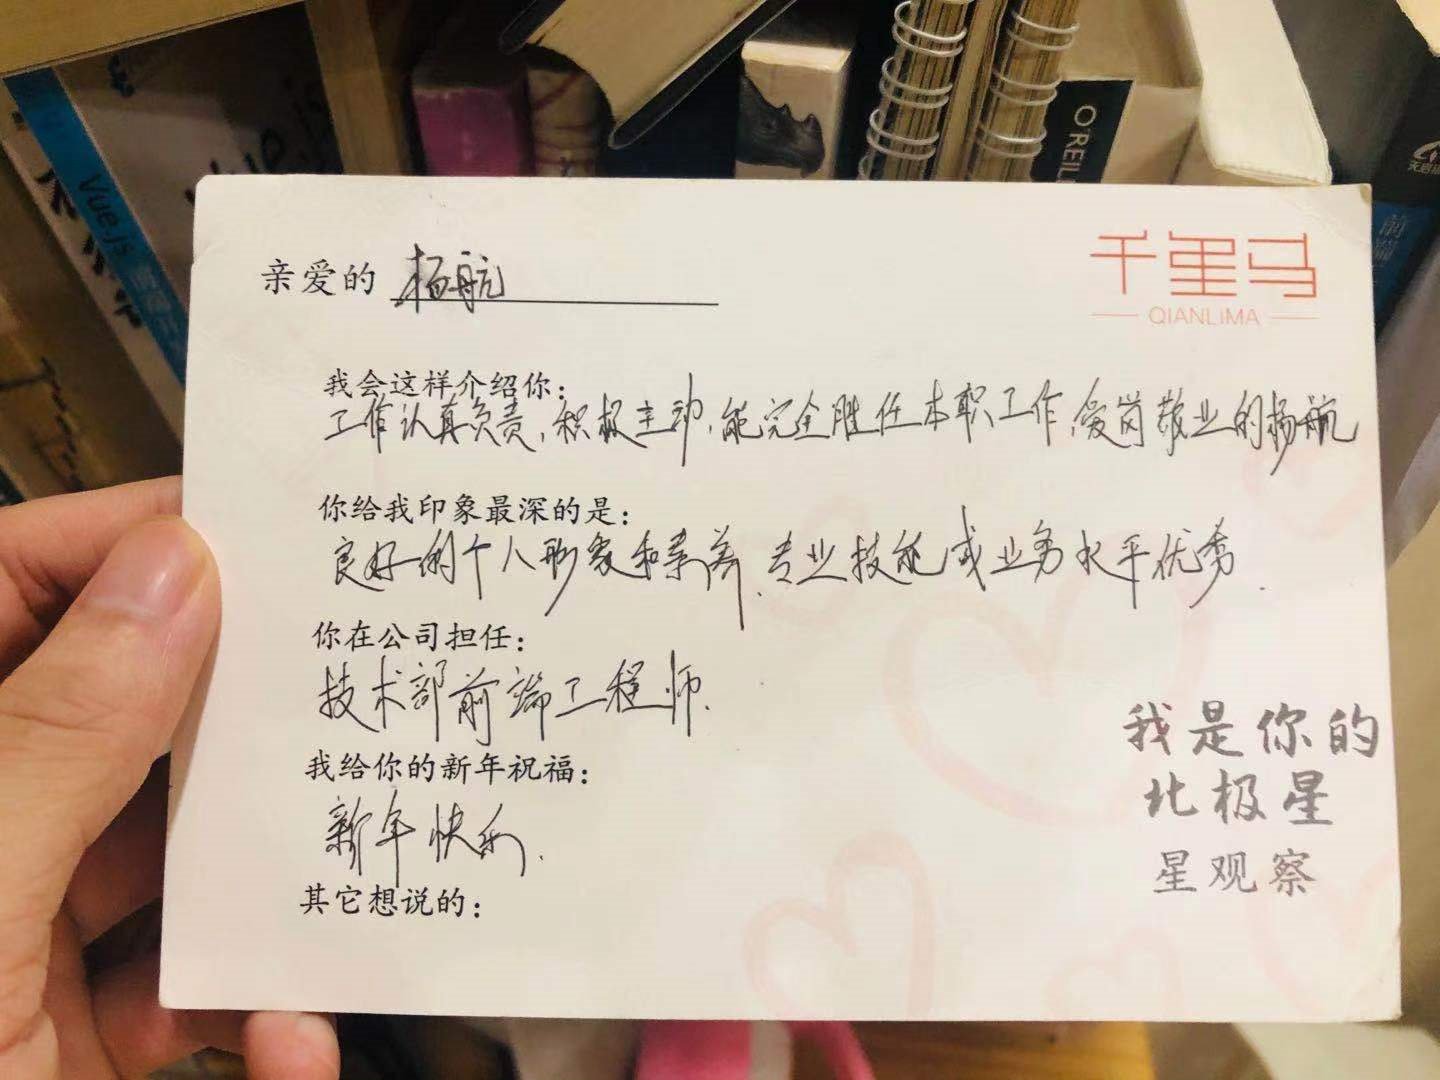 千里马
QIANLIMA
亲爱的 杨航
我会这样介绍你：
工作认真负责，积极主动，能完全胜任本职工作，爱岗敬业的杨航
你给我印象最深的是：
良好的个人形象和素养、专业技能或业务水平优秀.
你在公司担任：
技术部前端工程师.
我给你的新年祝福：
新年快乐.
其它想说的：
我是你的
北极星
星观察
Vue.js
O'REIL
前端